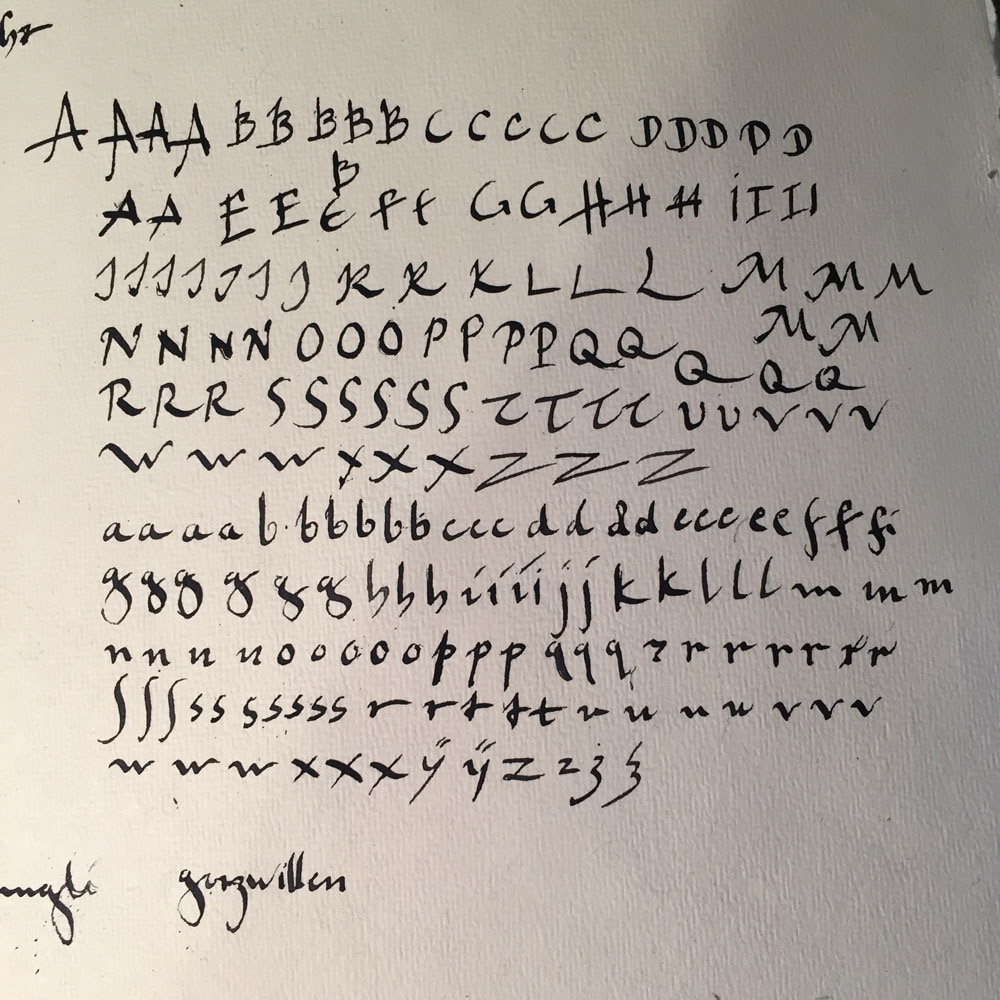 A A A A B B B B B C C C C C D D D D D
B
A A E E E f f G G H H H i I I I
J J J J J J J K K K L L L M M M
N N N N O O O P P P P Q Q M M
Q Q Q
R R R S S S S S S T T T T U U V V V
W W W X X X Z Z Z
a a a a b b b b b b c c c d d d d e c c e e f f fi
g g g g g g h h h i i i i j j k k l l l m m m
n n n n o o o o o p p p q q q r r r r r r r
ſ ſ ſ s s s s s s s r r t t t u u u u v v v
w w w x x x ÿ ÿ z z z z